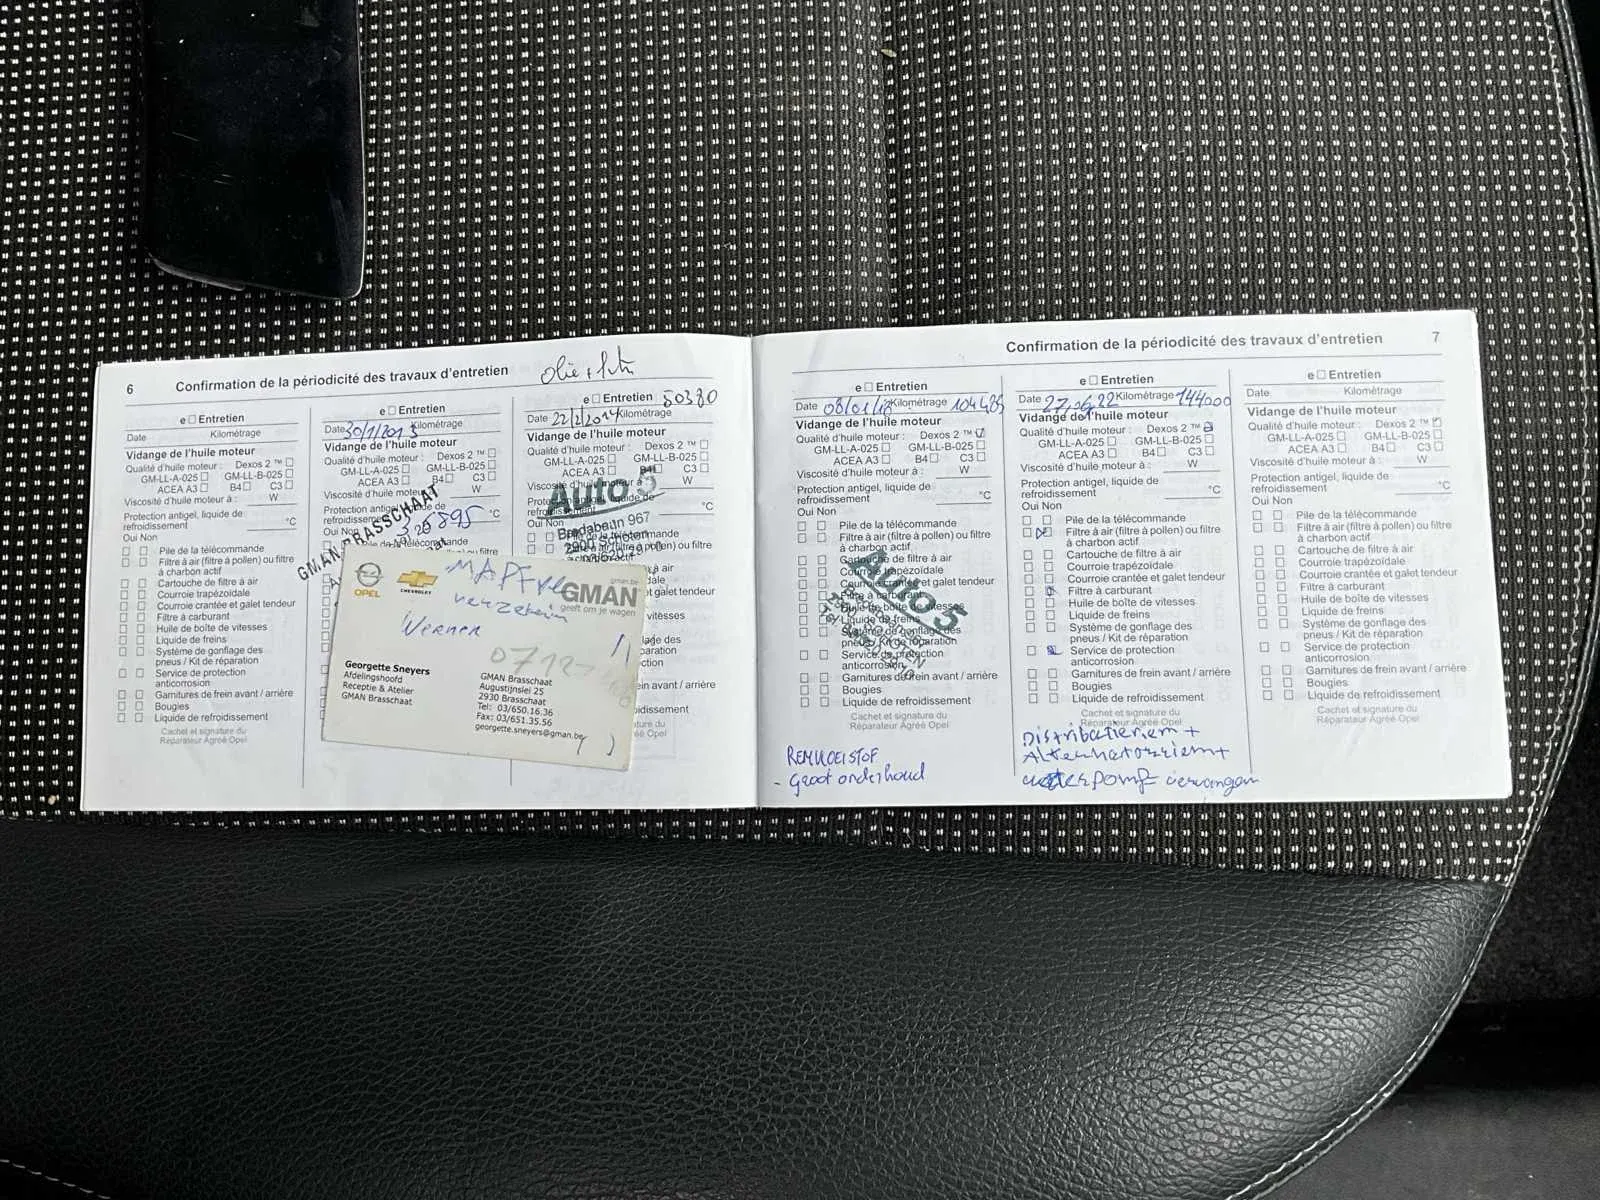 6 Confirmation de la périodicité des travaux d'entretien
e ☐ Entretien
Date Kilométrage
Vidange de l'huile moteur
Qualité d'huile moteur : Dexos 2 ™ ☐
GM-LL-A-025 ☐ GM-LL-B-025 ☐
ACEA A3 ☐ B4 ☐ C3 ☐
Viscosité d'huile moteur à : W
Protection antigel, liquide de
refroidissement °C
Oui Non
☐ ☐ Pile de la télécommande
☐ ☐ Filtre à air (filtre à pollen) ou filtre
à charbon actif
☐ ☐ Cartouche de filtre à air
☐ ☐ Courroie trapézoïdale
☐ ☐ Courroie crantée et galet tendeur
☐ ☐ Filtre à carburant
☐ ☐ Huile de boîte de vitesses
☐ ☐ Liquide de freins
☐ ☐ Système de gonflage des
pneus / Kit de réparation
☐ ☐ Service de protection
anticorrosion
☐ ☐ Garnitures de frein avant / arrière
☐ ☐ Bougies
☐ ☐ Liquide de refroidissement
Cachet et signature du
Réparateur Agréé Opel
e ☐ Entretien
Date 30/1/2013 Kilométrage
Vidange de l'huile moteur
Qualité d'huile moteur : Dexos 2 ™ ☐
GM-LL-A-025 ☐ GM-LL-B-025 ☐
ACEA A3 ☐ B4 ☐ C3 ☐
Viscosité d'huile moteur W
Protection antigel, liquide de
refroidissement °C
Oui Non
GMAN BRASSCHAAT
e ☐ Entretien 50380
Date 22/2/2014 Kilométrage
Vidange de l'huile moteur
Qualité d'huile moteur : Dexos 2 ™ ☐
GM-LL-A-025 ☐ GM-LL-B-025 ☐
ACEA A3 ☐ B4 ☐ C3 ☐
Viscosité d'huile moteur à : W
Protection antigel, liquide de
°C
Oui Non
Auto 5
Bredabaan 967
2900 Schoten
OPEL
CHEVROLET
GMAN
gman.be
geeft om je wagen
Werner
Georgette Sneyers
Afdelingshoofd
Receptie & Atelier
GMAN Brasschaat
GMAN Brasschaat
Augustijnslei 25
2930 Brasschaat
Tel: 03/650.16.36
Fax: 03/651.35.56
georgette.sneyers@gman.be
Confirmation de la périodicité des travaux d'entretien 7
e ☐ Entretien
Date 08/01/18 Kilométrage 104485
Vidange de l'huile moteur
Qualité d'huile moteur : Dexos 2 ™ ☑
GM-LL-A-025 ☐ GM-LL-B-025 ☐
ACEA A3 ☐ B4 ☐ C3 ☐
Viscosité d'huile moteur à : W
Protection antigel, liquide de
refroidissement °C
Oui Non
☐ ☐ Pile de la télécommande
☐ ☐ Filtre à air (filtre à pollen) ou filtre
à charbon actif
☐ ☐ Cartouche de filtre à air
☐ ☐ Courroie trapézoïdale
☐ ☐ Courroie crantée et galet tendeur
☐ ☐ Filtre à carburant
☐ ☐ Huile de boîte de vitesses
☐ ☐ Liquide de freins
☐ ☐ Système de gonflage des
pneus / Kit de réparation
☐ ☐ Service de protection
anticorrosion
☐ ☐ Garnitures de frein avant / arrière
☐ ☐ Bougies
☐ ☐ Liquide de refroidissement
Cachet et signature du
Réparateur Agréé Opel
Auto 5
- Groot onderhoud
e ☐ Entretien
Date 27.06.22 Kilométrage 144000
Vidange de l'huile moteur
Qualité d'huile moteur : Dexos 2 ™ ☑
GM-LL-A-025 ☐ GM-LL-B-025 ☐
ACEA A3 ☐ B4 ☐ C3 ☐
Viscosité d'huile moteur à : W
Protection antigel, liquide de
refroidissement °C
Oui Non
☐ ☐ Pile de la télécommande
☐ ☑ Filtre à air (filtre à pollen) ou filtre
à charbon actif
☐ ☐ Cartouche de filtre à air
☐ ☐ Courroie trapézoïdale
☐ ☐ Courroie crantée et galet tendeur
☐ ☑ Filtre à carburant
☐ ☐ Huile de boîte de vitesses
☐ ☐ Liquide de freins
☐ ☐ Système de gonflage des
pneus / Kit de réparation
☐ ☑ Service de protection
anticorrosion
☐ ☐ Garnitures de frein avant / arrière
☐ ☐ Bougies
☐ ☐ Liquide de refroidissement
Cachet et signature du
Réparateur Agréé Opel
Distributieriem +
waterpomp vervangen
e ☐ Entretien
Date Kilométrage
Vidange de l'huile moteur
Qualité d'huile moteur : Dexos 2 ™ ☑
GM-LL-A-025 ☐ GM-LL-B-025 ☐
ACEA A3 ☐ B4 ☐ C3 ☐
Viscosité d'huile moteur à : W
Protection antigel, liquide de
refroidissement °C
Oui Non
☐ ☐ Pile de la télécommande
☐ ☐ Filtre à air (filtre à pollen) ou filtre
à charbon actif
☐ ☐ Cartouche de filtre à air
☐ ☐ Courroie trapézoïdale
☐ ☐ Courroie crantée et galet tendeur
☐ ☐ Filtre à carburant
☐ ☐ Huile de boîte de vitesses
☐ ☐ Liquide de freins
☐ ☐ Système de gonflage des
pneus / Kit de réparation
☐ ☐ Service de protection
anticorrosion
☐ ☐ Garnitures de frein avant / arrière
☐ ☐ Bougies
☐ ☐ Liquide de refroidissement
Cachet et signature du
Réparateur Agréé Opel